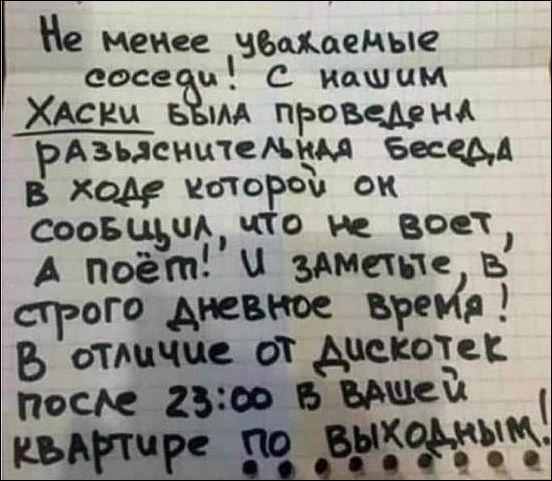 Не менее уважаемые
соседи! С нашим
ХАСКИ БЫЛА проведена
разъяснительная беседа
в ходе которой он
сообщил, что не воет,
А поёт! И заметьте, в
строго дневное время!
В отличие от дискотек
после 23:00 в вашей
квартире по выходным!